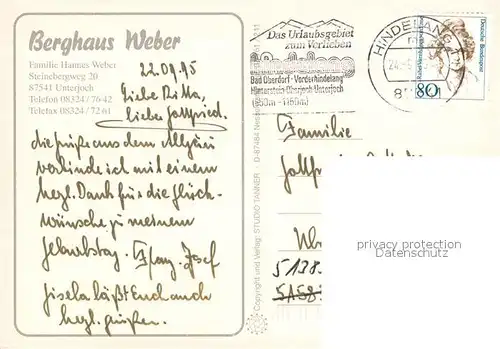 Berghaus Weber
Familie Hannes Weber
Steinebergweg 20
87541 Unterjoch
Telefon 08324/7642
Telefax 08324/7261
22.09.95
Liebe Ritta,
lieber Gottfried.
die Grüße aus dem Allgäu
verbinde ich mit einem
hegl. Dank für die Glück-
wünsche zu meinem
Geburtstag. Josef
Gisela läßt Euch auch
hegl. grüßen.
Das Urlaubsgebiet
zum Verlieben
Bad Oberdorf - Vorderhindelang
Hinterstein · Oberjoch · Unterjoch
(850m - 1160m)
HINDELANG
Deutsche Bundespost
80
Copyright und Verlag: STUDIO TANNER · D-87484
Familie
5138
privacy protection